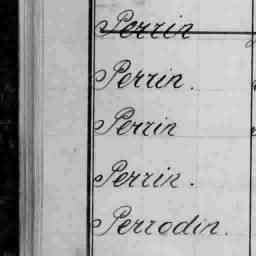 Perrin
Perrin.
Perrin
Perrin.
Perrodin.